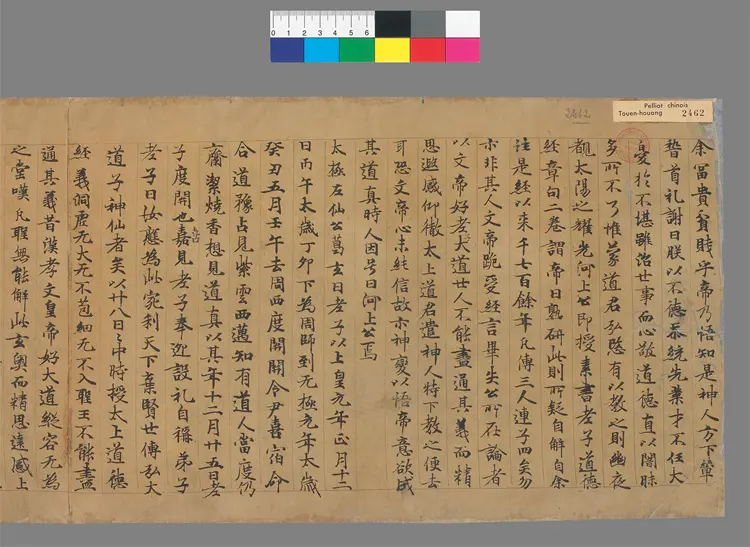 Pelliot chinois
Touen-houang 2462
2462
0 1 2 3 4 5 6
余冨貴貧賤乎帝乃悟知是神人方下輦
𥡴首礼謝曰朕以不德忝統先業才不任大
憂扵不堪雖治世事而心敬道德直以闇昧
多所不了惟蒙道君弘愍有以教之則幽夜
覩太陽之耀光河上公即授素書老子道德
經章句二卷謂帝曰熟研此則所疑自解自余
注是經以来千七百餘年凡傳三人連子四矣勿
示非其人文帝跪受經言畢失公所在論者
以文帝好老大道世人不能盡通其義而精
思遐感仰徹太上道君遣神人特下教之便去
耳恐文帝心未純信故示神變以悟帝意欲成
其道真時人因号曰河上公焉
太極左仙公葛玄曰老子以上皇元年正月十二
日丙午太歲丁卯下為周師到无極元年太歲
癸丑五月壬午去周西度關關令尹喜宿命
合道豫占見紫雲西邁知有道人當度仍
齋潔燒香想見道真以其年十二月廿五日老
子度關也喜見老子奉迎設礼自稱弟子
老子曰汝應為此宛利天下棄賢世傳弘大
道子神仙者矣以廿八日日中時授太上道德
經義洞虛无大无不苞細无不入聖王不能盡
通其義昔漢孝文皇帝好大道縱容无為
之堂嘆凡聖無能解此玄奥而精思遠感上